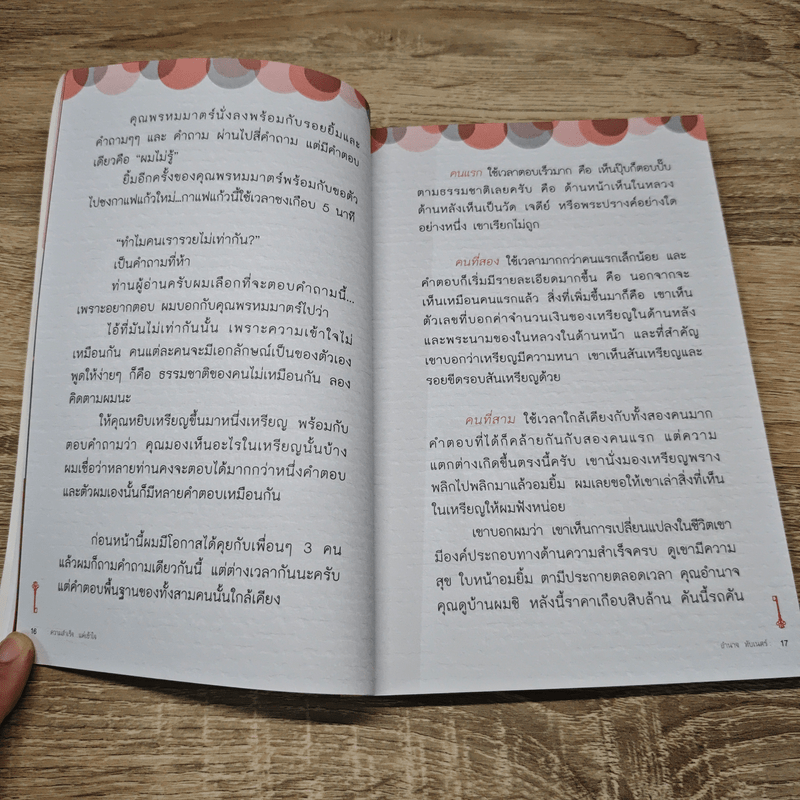 คุณพรหมมาตร์นั่งลงพร้อมกับรอยยิ้มและ
คำถามๆๆ และ คำถาม ผ่านไปสี่คำถาม แต่มีคำตอบ
เดียวคือ "ผมไม่รู้"
ยิ้มอีกครั้งของคุณพรหมมาตร์พร้อมกับขอตัว
ไปชงกาแฟแก้วใหม่...กาแฟแก้วนี้ใช้เวลาชงเกือบ 5 นาที
"ทำไมคนเรารวยไม่เท่ากัน?"
เป็นคำถามที่ห้า
ท่านผู้อ่านครับผมเลือกที่จะตอบคำถามนี้...
เพราะอยากตอบ ผมบอกกับคุณพรหมมาตร์ไปว่า
ไอ้ที่มันไม่เท่ากันนั้น เพราะความเข้าใจไม่
เหมือนกัน คนแต่ละคนจะมีเอกลักษณ์เป็นของตัวเอง
พูดให้ง่ายๆ ก็คือ ธรรมชาติของคนไม่เหมือนกัน ลอง
คิดตามผมนะ
ให้คุณหยิบเหรียญขึ้นมาหนึ่งเหรียญ พร้อมกับ
ตอบคำถามว่า คุณมองเห็นอะไรในเหรียญนั้นบ้าง
ผมเชื่อว่าหลายท่านคงจะตอบได้มากกว่าหนึ่งคำตอบ
และตัวผมเองนั้นก็มีหลายคำตอบเหมือนกัน
ก่อนหน้านี้ผมมีโอกาสได้คุยกับเพื่อนๆ 3 คน
แล้วผมก็ถามคำถามเดียวกันนี้ แต่ต่างเวลากันนะครับ
แต่คำตอบพื้นฐานของทั้งสามคนนั้นใกล้เคียง
16 ความสำเร็จ แค่เข้าใจ
คนแรก ใช้เวลาตอบเร็วมาก คือ เห็นปุ๊บก็ตอบปั๊บ
ตามธรรมชาติเลยครับ คือ ด้านหน้าเห็นในหลวง
ด้านหลังเห็นเป็นวัด เจดีย์ หรือพระปรางค์อย่างใด
อย่างหนึ่ง เขาเรียกไม่ถูก
คนที่สอง ใช้เวลามากกว่าคนแรกเล็กน้อย และ
คำตอบก็เริ่มมีรายละเอียดมากขึ้น คือ นอกจากจะ
เห็นเหมือนคนแรกแล้ว สิ่งที่เพิ่มขึ้นมาก็คือ เขาเห็น
ตัวเลขที่บอกค่าจำนวนเงินของเหรียญในด้านหลัง
และพระนามของในหลวงในด้านหน้า และที่สำคัญ
เขาบอกว่าเหรียญมีความหนา เขาเห็นสันเหรียญและ
รอยขีดรอบสันเหรียญด้วย
คนที่สาม ใช้เวลาใกล้เคียงกับทั้งสองคนมาก
คำตอบที่ได้ก็คล้ายกันกับสองคนแรก แต่ความ
แตกต่างเกิดขึ้นตรงนี้ครับ เขานั่งมองเหรียญพราง
พลิกไปพลิกมาแล้วอมยิ้ม ผมเลยขอให้เขาเล่าสิ่งที่เห็น
ในเหรียญให้ผมฟังหน่อย
เขาบอกผมว่า เขาเห็นการเปลี่ยนแปลงในชีวิตเขา
มีองค์ประกอบทางด้านความสำเร็จครบ ดูเขามีความ
สุข ใบหน้าอมยิ้ม ตามีประกายตลอดเวลา คุณอำนาจ
คุณดูบ้านผมซิ หลังนี้ราคาเกือบสิบล้าน คันนี้รถคัน
อำนาจ ทับเนตร์ 17